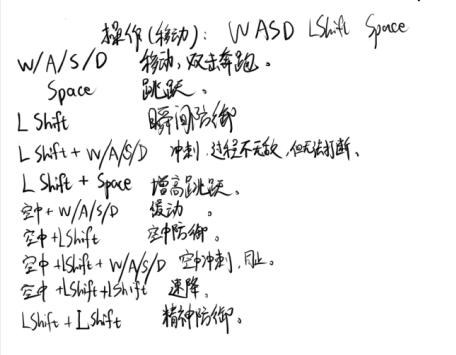 操作(移动): WASD LShift Space
W/A/S/D 移动,双击奔跑。
Space 跳跃。
L Shift 瞬间防御
L Shift + W/A/S/D 冲刺,过程不无敌,但无法打断。
L Shift + Space 增高跳跃。
空中 + W/A/S/D 缓动 。
空中 +LShift 空中防御。
空中 +LShift + W/A/S/D 空中冲刺,同上。
空中 +LShift+LShift 速降。
LShift + LShift 精神防御。